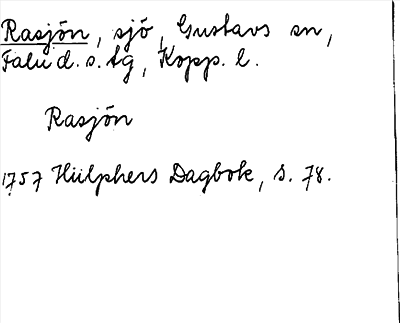 Rasjön, sjö, Gustavs sn,
Falu d.s. tg, Kopp. l.
Rasjön
1757 Hülphers Dagbok, s. 78.